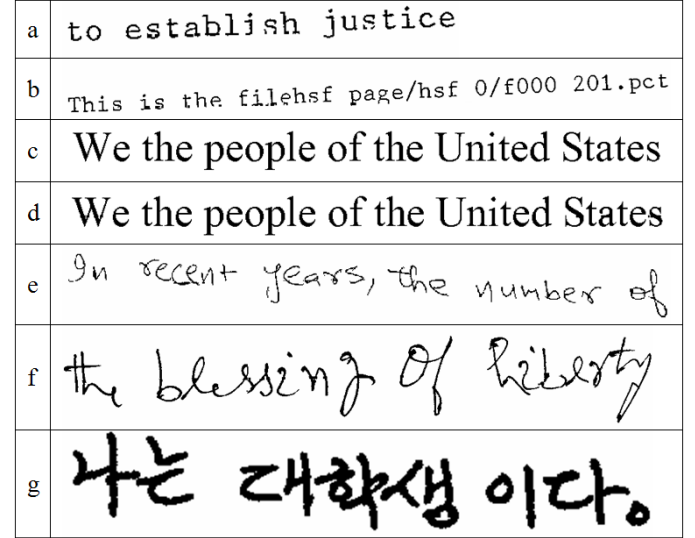 a to establish justice
b This is the filehsf page/hsf 0/f000 201.pct
c We the people of the United States
d We the people of the United States
e In recent years, the number of
f the blessing of liberty
g 나는 대학생 이다。